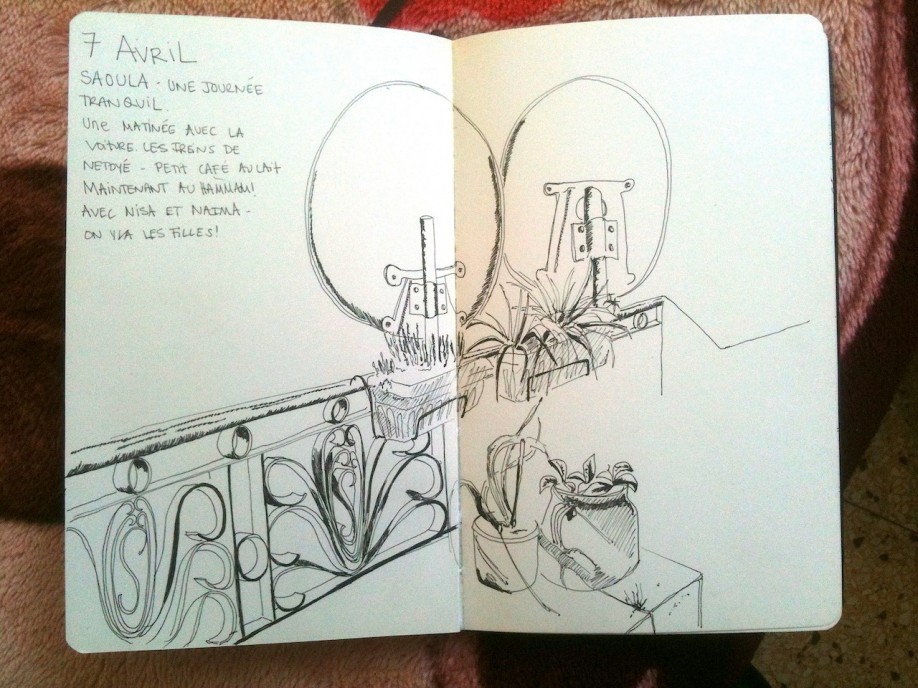 7 AVRIL
SAOULA - UNE JOURNÉE
TRANQUIL.
UNE MATINÉE AVEC LA
VOITURE. LES FREINS DE
NETOYÉ - PETIT CAFÉ AU LAIT
MAINTENANT AU HAMMAM!
AVEC NISA ET NAIMA -
ON Y VA LES FILLES!